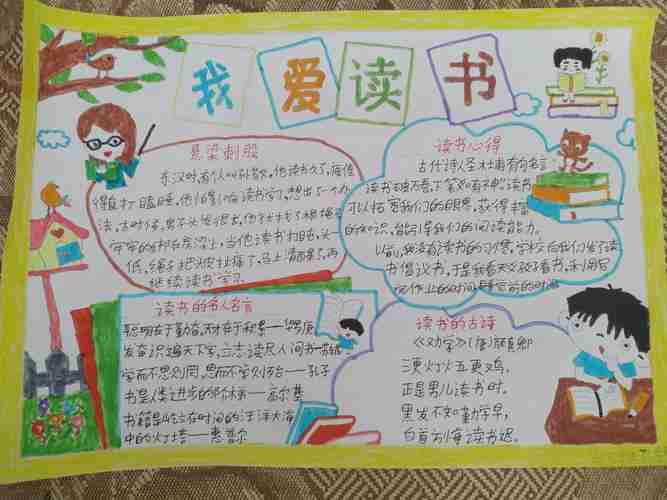 我爱读书
悬梁刺股
东汉时,有人叫孙敬,他读书久了,疲倦
得直打瞌睡,他怕影响读书学习,想出了一个办
法,古时候,男子头发很长,他就找了根绳子
牢牢的绑在房梁上,当他读书打盹,头一
低,绳子把头皮扯痛了,马上清醒了,再
继续读书学习
读书心得
古代诗人圣杜甫有句名言
读书破万卷,下笔如有神,读书
可以拓宽我们的眼界,获得丰富
的知识,能引导我们的阅读能力。
以前,我没有读书的习惯,学校给我们发了读
书倡议书,于是我每天义务看书,利用写
完作业的时间睡前的时间
读书的名人名言
聪明在于勤奋,天才在于积累——华罗庚
发奋识遍天下字,立志读尽人间书——苏轼
学而不思则罔,思而不学则殆——孔子
书是人类进步的阶梯——高尔基
书籍是屹立在时间的汪洋大海
中的灯塔——惠普尔
读书的古诗
《劝学》(唐)颜真卿
三更灯火五更鸡,
正是男儿读书时。
黑发不知勤学早,
白首方悔读书迟。